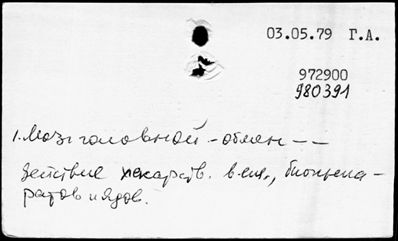 03.05.79 Г.А.
972900
980391
1. Мозг головной - обмен - -
действие лекарств. вещ., биопрепа-
ратов и ядов.